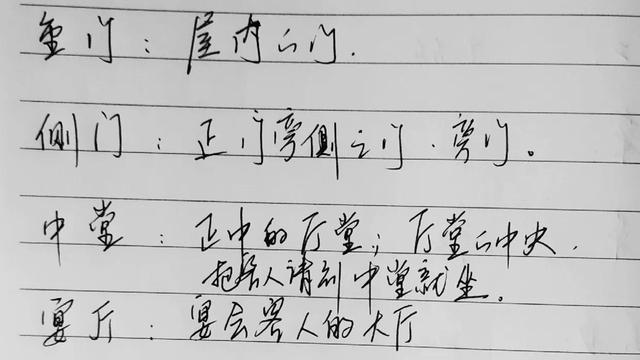 室门：屋内的门.
侧门：正门旁侧之门.旁门。
中堂：正中的厅堂；厅堂的中央.
把客人请到中堂就坐.
宴厅：宴会客人的大厅